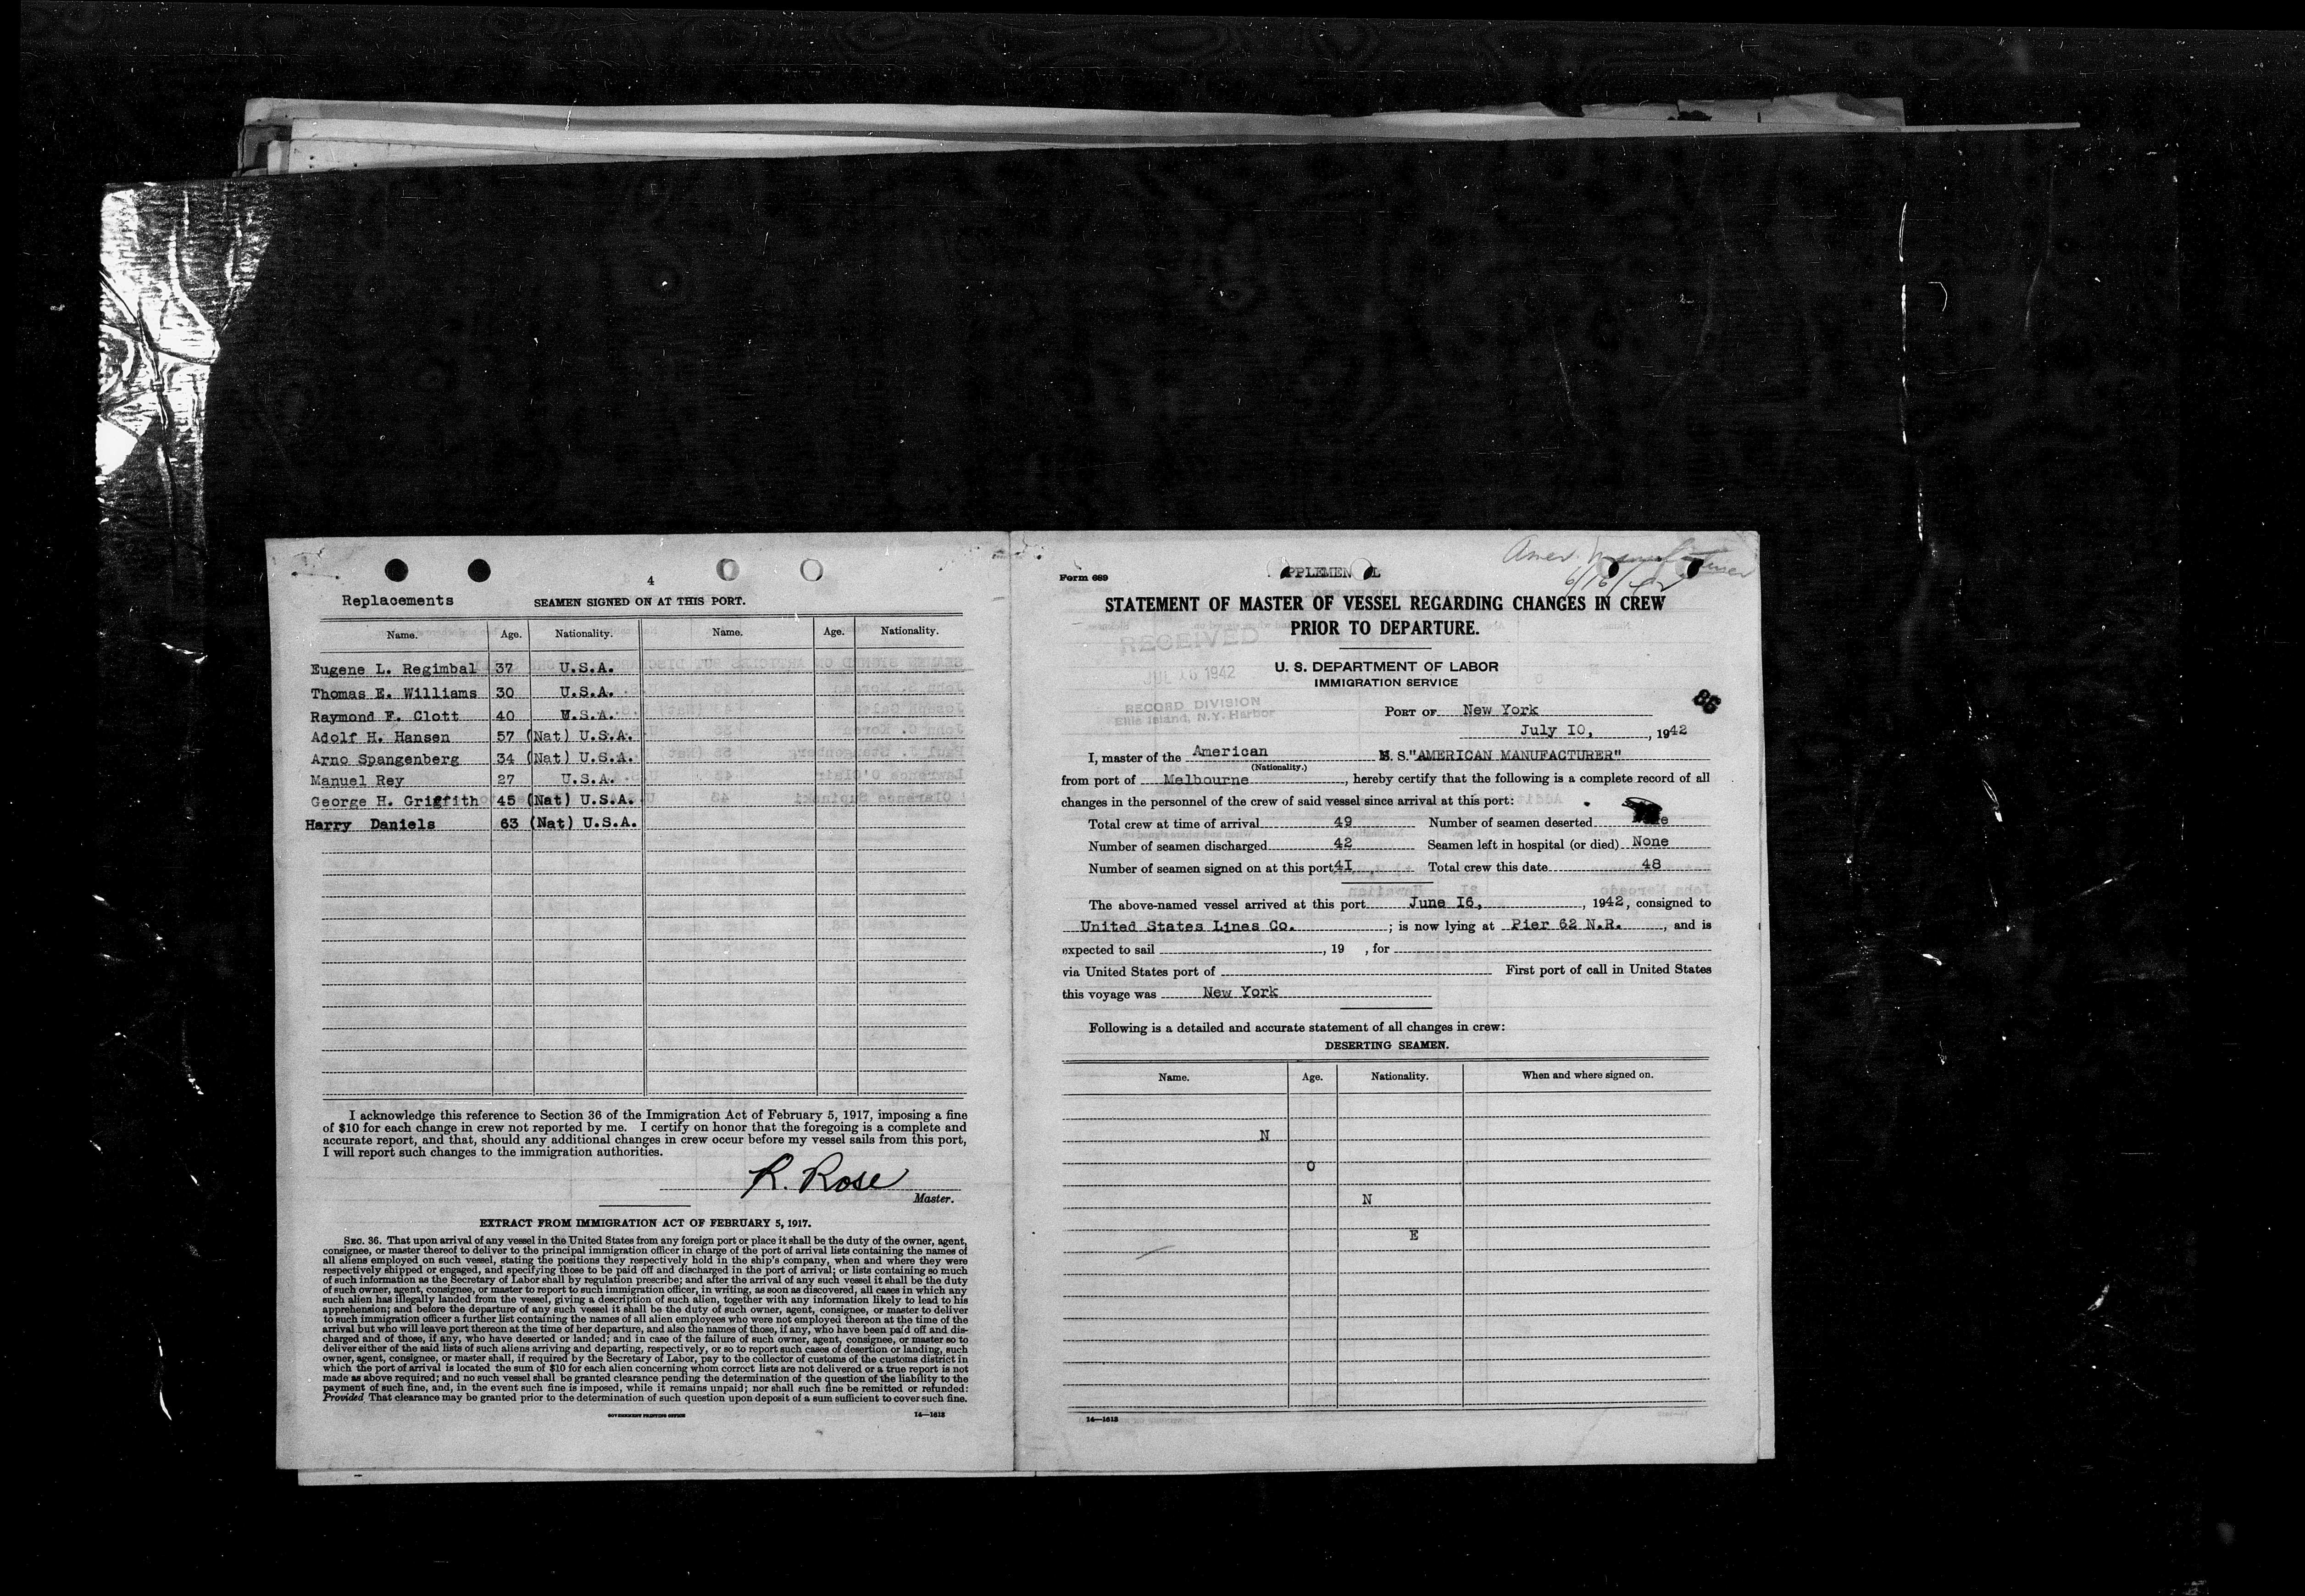 4
Replacements
SEAMEN SIGNED ON AT THIS PORT.
Name. Age. Nationality. Name. Age. Nationality.
Eugene L. Regimbal 37 U.S.A.
Thomas E. Williams 30 U.S.A.
Raymond F. Clott 40 U.S.A.
Adolf H. Hansen 57 (Nat) U.S.A.
Arno Spangenberg 34 (Nat) U.S.A.
Manuel Rey 27 U.S.A.
George H. Griffith 45 (Nat) U.S.A.
Harry Daniels 63 (Nat) U.S.A.
I acknowledge this reference to Section 36 of the Immigration Act of February 5, 1917, imposing a fine
of $10 for each change in crew not reported by me. I certify on honor that the foregoing is a complete and
accurate report, and that, should any additional changes in crew occur before my vessel sails from this port,
I will report such changes to the immigration authorities.
R. Rose
Master.
EXTRACT FROM IMMIGRATION ACT OF FEBRUARY 5, 1917.
SEC. 36. That upon arrival of any vessel in the United States from any foreign port or place it shall be the duty of the owner, agent,
consignee, or master thereof to deliver to the principal immigration officer in charge of the port of arrival lists containing the names of
all aliens employed on such vessel, stating the positions they respectively hold in the ship's company, when and where they were
respectively shipped or engaged, and specifying those to be paid off and discharged in the port of arrival; or lists containing so much
of such information as the Secretary of Labor shall by regulation prescribe; and after the arrival of any such vessel it shall be the duty
of such owner, agent, consignee, or master to report to such immigration officer, in writing, as soon as discovered, all cases in which any
such alien has illegally landed from the vessel, giving a description of such alien, together with any information likely to lead to his
apprehension; and before the departure of any such vessel it shall be the duty of such owner, agent, consignee, or master to deliver
to such immigration officer a further list containing the names of all alien employees who were not employed thereon at the time of the
arrival but who will leave port thereon at the time of her departure, and also the names of those, if any, who have been paid off and dis-
charged and of those, if any, who have deserted or landed; and in case of the failure of such owner, agent, consignee, or master so to
deliver either of the said lists of such aliens arriving and departing, respectively, or so to report such cases of desertion or landing, such
owner, agent, consignee, or master shall, if required by the Secretary of Labor, pay to the collector of customs of the customs district in
which the port of arrival is located the sum of $10 for each alien concerning whom correct lists are not delivered or a true report is not
made as above required; and no such vessel shall be granted clearance pending the determination of the question of the liability to the
payment of such fine, and, in the event such fine is imposed, while it remains unpaid; nor shall such fine be remitted or refunded:
Provided That clearance may be granted prior to the determination of such question upon deposit of a sum sufficient to cover such fine.
GOVERNMENT PRINTING OFFICE 14—1613
Amer. Manufacturer
6/16/42
Form 689
STATEMENT OF MASTER OF VESSEL REGARDING CHANGES IN CREW
PRIOR TO DEPARTURE.
RECEIVED
1942
RECORD DIVISION
Ellis Island, N.Y. Harbor
U. S. DEPARTMENT OF LABOR
IMMIGRATION SERVICE
86
PORT OF New York
July 10, , 1942
I, master of the American S. S. "AMERICAN MANUFACTURER"
(Nationality.)
from port of Melbourne, hereby certify that the following is a complete record of all
changes in the personnel of the crew of said vessel since arrival at this port:
Total crew at time of arrival 49 Number of seamen deserted
Number of seamen discharged 42 Seamen left in hospital (or died) None
Number of seamen signed on at this port 41 Total crew this date 48
The above-named vessel arrived at this port June 16, , 1942, consigned to
United States Lines Co. ; is now lying at Pier 62 N.R. , and is
expected to sail , 19 , for
via United States port of First port of call in United States
this voyage was New York
Following is a detailed and accurate statement of all changes in crew:
DESERTING SEAMEN.
Name. Age. Nationality. When and where signed on.
N
O
N
E
14—1613